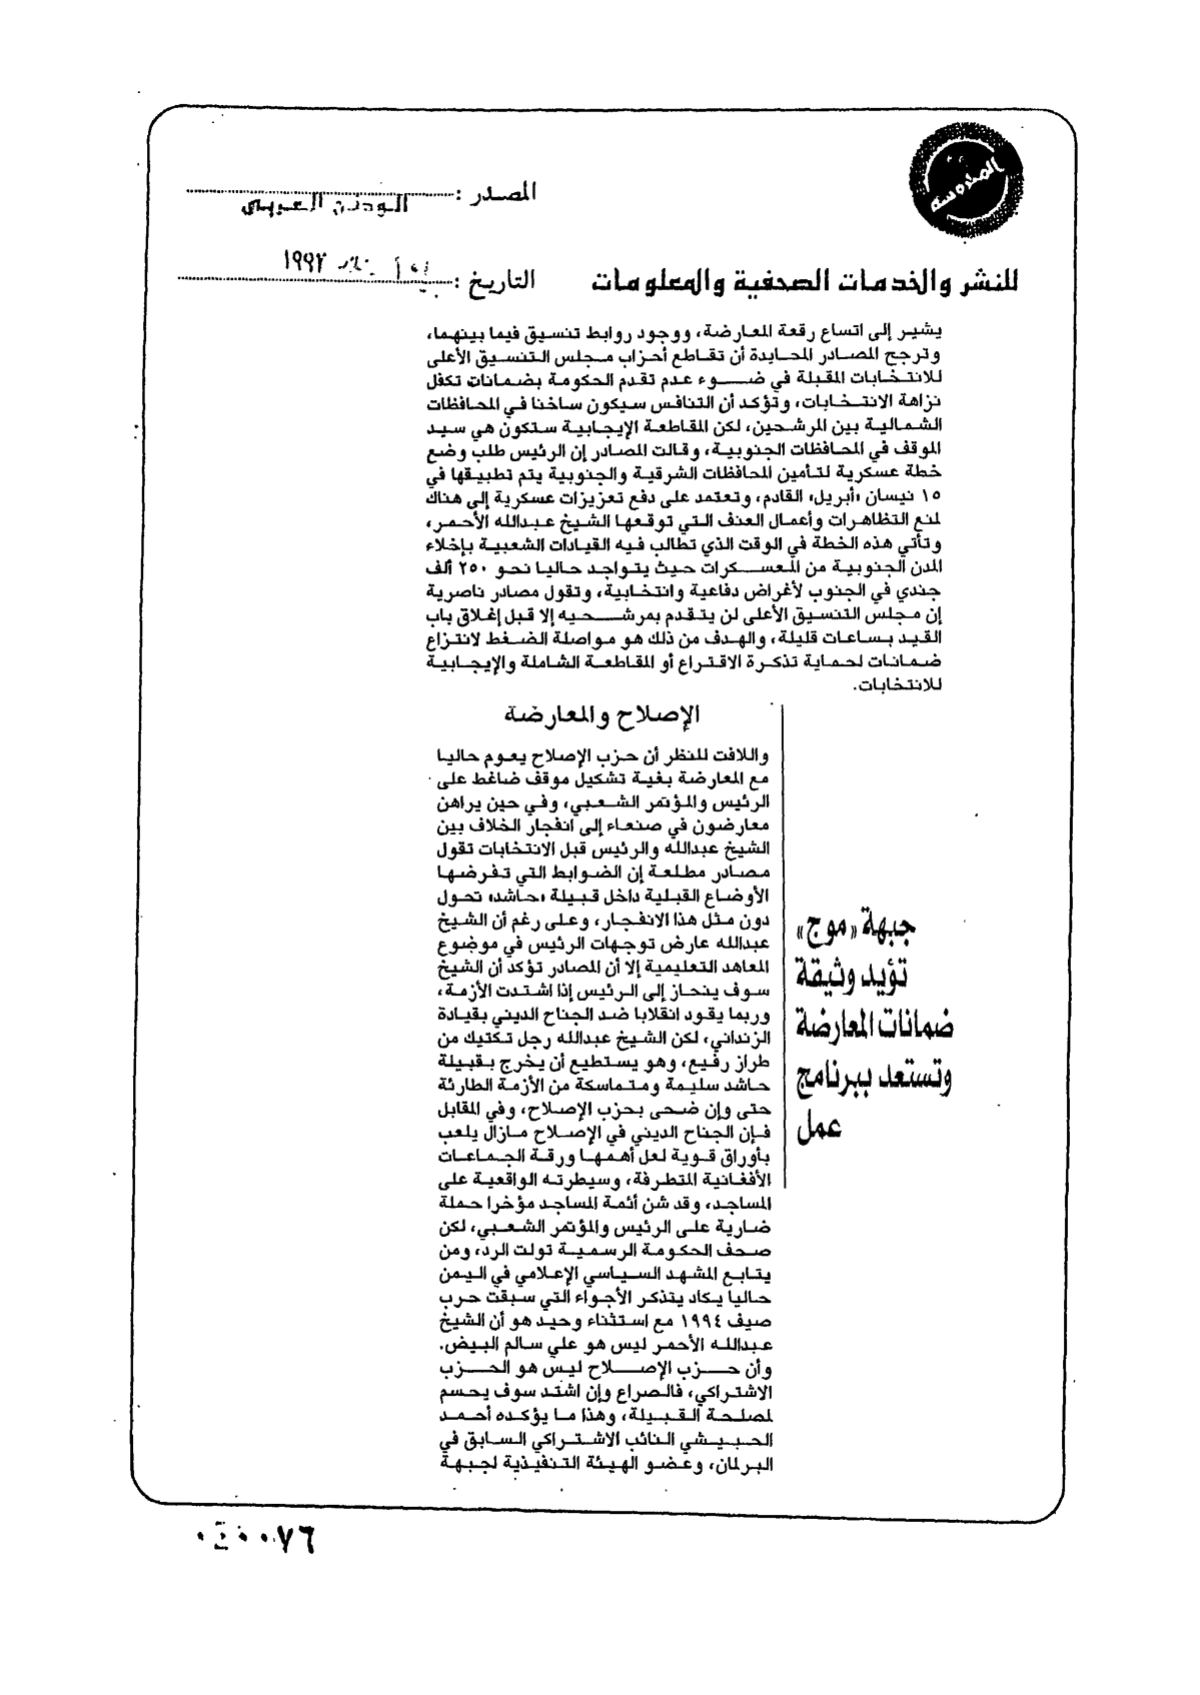 المدوسة
المصدر :
الوطن العربي
للنشر والخدمات الصحفية والمعلومات
التاريخ :
يشير إلى اتساع رقعة المعارضة، ووجود روابط تنسيق فيما بينهما،
وترجح المصادر المحايدة أن تقاطع أحزاب مجلس التنسيق الأعلى
للانتخابات المقبلة في ضوء عدم تقدم الحكومة بضمانات تكفل
نزاهة الانتخابات، وتؤكد أن التنافس سيكون ساخنا في المحافظات
الشمالية بين المرشحين، لكن المقاطعة الإيجابية ستكون هي سيد
الموقف في المحافظات الجنوبية، وقالت المصادر إن الرئيس طلب وضع
خطة عسكرية لتأمين المحافظات الشرقية والجنوبية يتم تطبيقها في
١٥ نيسان «أبريل» القادم، وتعتمد على دفع تعزيزات عسكرية إلى هناك
لمنع التظاهرات وأعمال العنف التي توقعها الشيخ عبدالله الأحمر،
وتأتي هذه الخطة في الوقت الذي تطالب فيه القيادات الشعبية بإخلاء
المدن الجنوبية من المعسكرات حيث يتواجد حاليا نحو ٢٥٠ ألف
جندي في الجنوب لأغراض دفاعية وانتخابية، وتقول مصادر ناصرية
إن مجلس التنسيق الأعلى لن يتقدم بمرشحيه إلا قبل إغلاق باب
القيد بساعات قليلة، والهدف من ذلك هو مواصلة الضغط لانتزاع
ضمانات لحماية تذكرة الاقتراع أو المقاطعة الشاملة والإيجابية
للانتخابات.
الإصلاح والمعارضة
واللافت للنظر أن حزب الإصلاح يعوم حاليا
مع المعارضة بغية تشكيل موقف ضاغط على
الرئيس والمؤتمر الشعبي، وفي حين يراهن
معارضون في صنعاء إلى انفجار الخلاف بين
الشيخ عبدالله والرئيس قبل الانتخابات تقول
مصادر مطلعة إن الضوابط التي تفرضها
الأوضاع القبلية داخل قبيلة «حاشد» تحول
دون مثل هذا الانفجار، وعلى رغم أن الشيخ
عبدالله عارض توجهات الرئيس في موضوع
المعاهد التعليمية إلا أن المصادر تؤكد أن الشيخ
سوف ينحاز إلى الرئيس إذا اشتدت الأزمة،
وربما يقود انقلابا ضد الجناح الديني بقيادة
الزنداني، لكن الشيخ عبدالله رجل تكتيك من
طراز رفيع، وهو يستطيع أن يخرج بقبيلة
حاشد سليمة ومتماسكة من الأزمة الطارئة
حتى وإن ضحى بحزب الإصلاح، وفي المقابل
فإن الجناح الديني في الإصلاح مازال يلعب
بأوراق قوية لعل أهمها ورقة الجماعات
الأفغانية المتطرفة، وسيطرته الواقعية على
المساجد، وقد شن أئمة المساجد مؤخرا حملة
ضارية على الرئيس والمؤتمر الشعبي، لكن
صحف الحكومة الرسمية تولت الرد، ومن
يتابع المشهد السياسي الإعلامي في اليمن
حاليا يكاد يتذكر الأجواء التي سبقت حرب
صيف ١٩٩٤ مع استثناء وحيد هو أن الشيخ
عبدالله الأحمر ليس هو علي سالم البيض.
وأن حزب الإصلاح ليس هو الحزب
الاشتراكي، فالصراع وإن اشتد سوف يحسم
لمصلحة القبيلة، وهذا ما يؤكده أحمد
الحبيشي النائب الاشتراكي السابق في
البرلمان، وعضو الهيئة التنفيذية لجبهة
جبهة «موج»
تؤيد وثيقة
ضمانات المعارضة
وتستعد ببرنامج
عمل